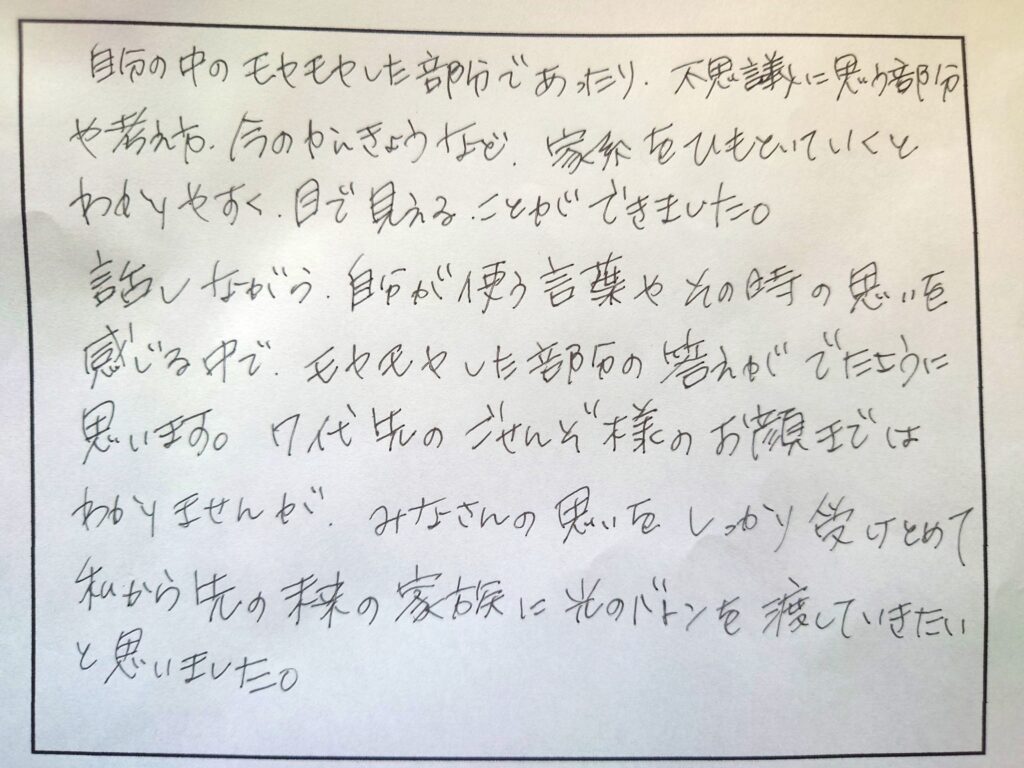 自分の中のモヤモヤした部分であったり、不思議に思う部分
や考え方、今のかんきょうなど、家系をひもといていくと
わかりやすく、目で見えることができました。
話しながら、自分が使う言葉やその時の思いを
感じる中で、モヤモヤした部分の答えがでたように
思います。7代先のごせんぞ様のお顔までは
わかりませんが、みなさんの思いを しっかり受けとめて
私から先の未来の家族に光のバトンを渡していきたい
と思いました。